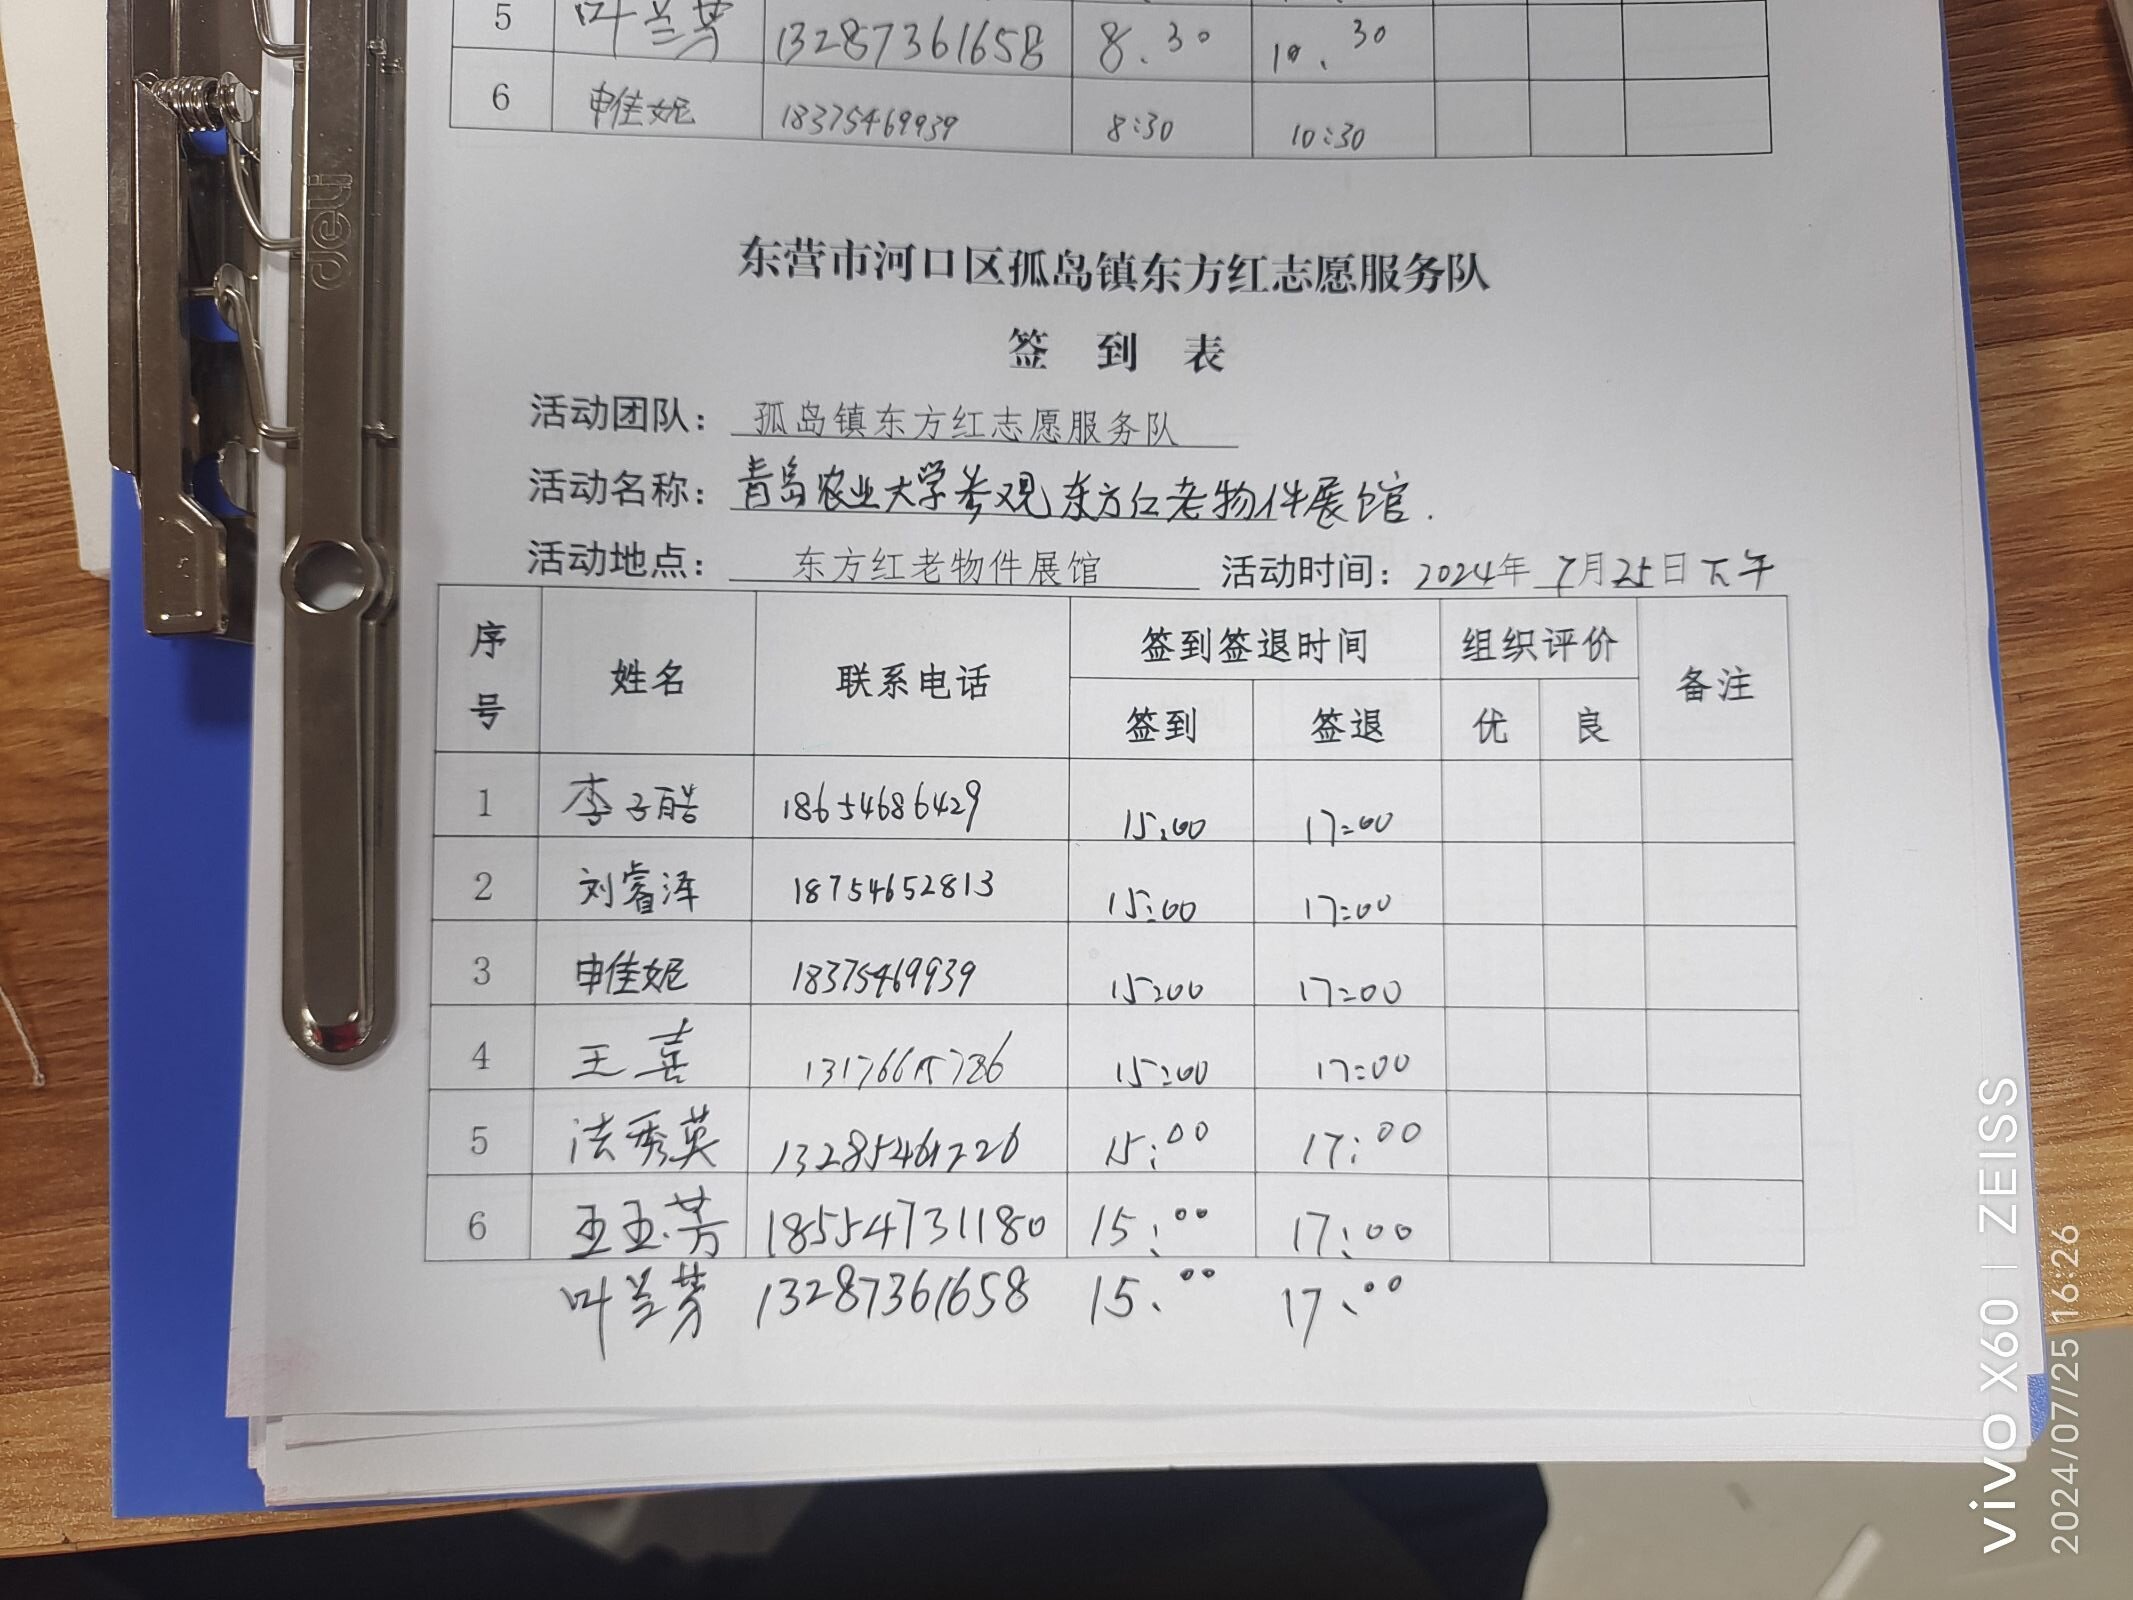 5 叶兰芳 13287361658 8.30 10.30
6 申佳妮 18375469939 8:30 10:30
deli
东营市河口区孤岛镇东方红志愿服务队
签 到 表
活动团队： 孤岛镇东方红志愿服务队
活动名称：青岛农业大学参观东方红老物件展馆.
活动地点： 东方红老物件展馆 活动时间：2024年 7月25日下午
序号 姓名 联系电话 签到签退时间 组织评价 备注
签到 签退 优 良
1 李子皓 18654686429 15:00 17:00
2 刘睿泽 18754652813 15:00 17:00
3 申佳妮 18375469939 15:00 17:00
4 王喜 15:00 17:00
5 法秀英 15:00 17:00
6 王玉芳 18554731180 15:00 17:00
叶兰芳 13287361658 15.00 17.00
vivo X60 | ZEISS
2024/07/25 16:26